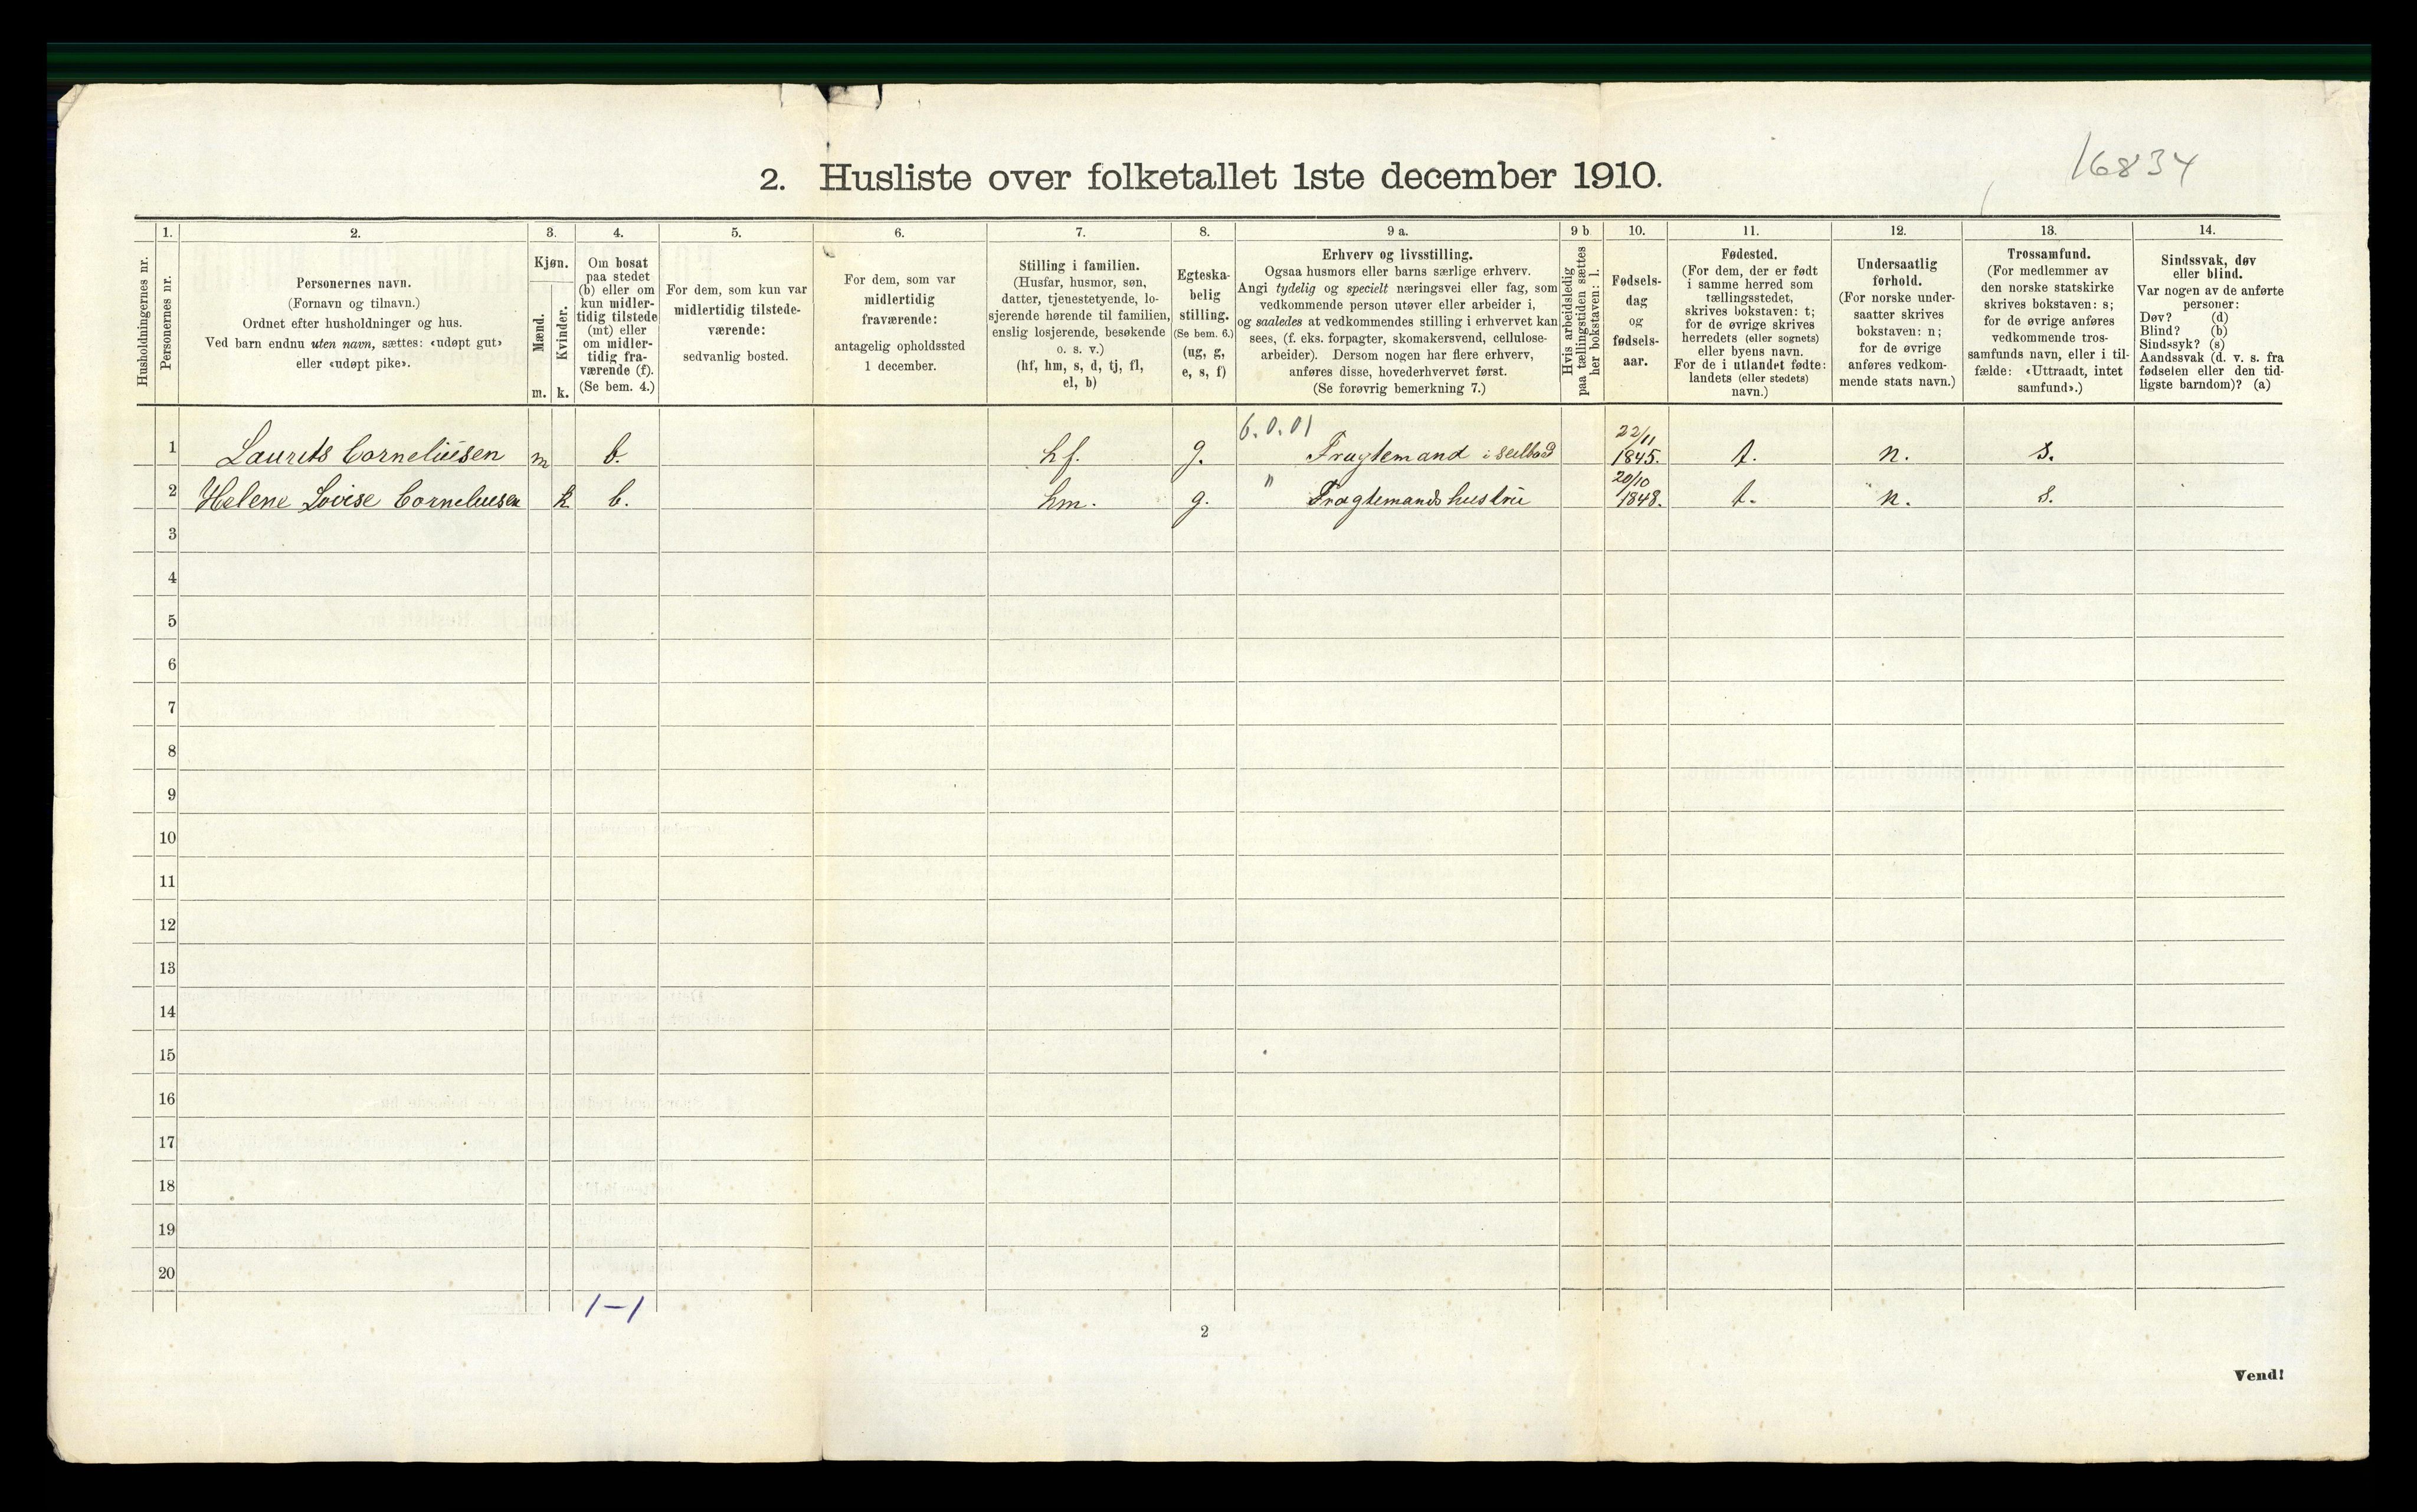 16834
2. Husliste over folketallet 1ste december 1910.
Husholdningernes nr.
1.
Personernes nr.
2.
Personernes navn.
(Fornavn og tilnavn.)
Ordnet efter husholdninger og hus.
Ved barn endnu uten navn, sættes: «udøpt gut»
eller «udøpt pike».
3.
Kjøn.
Mænd.
m.
Kvinder.
k.
4.
Om bosat
paa stedet
(b) eller om
kun midler-
tidig tilstede
(mt) eller
om midler-
tidig fra-
værende (f).
(Se bem. 4.)
5.
For dem, som kun var
midlertidig tilstede-
værende:
sedvanlig bosted.
6.
For dem, som var
midlertidig
fraværende:
antagelig opholdssted
1 december.
7.
Stilling i familien.
(Husfar, husmor, søn,
datter, tjenestetyende, lo-
sjerende hørende til familien,
enslig losjerende, besøkende
o. s. v.)
(hf, hm, s, d, tj, fl,
el, b)
8.
Egteska-
belig
stilling.
(Se bem. 6.)
(ug, g,
e, s, f)
9 a.
Erhverv og livsstilling.
Ogsaa husmors eller barns særlige erhverv.
Angi tydelig og specielt næringsvei eller fag, som
vedkommende person utøver eller arbeider i,
og saaledes at vedkommendes stilling i erhvervet kan
sees, (f. eks. forpagter, skomakersvend, cellulose-
arbeider). Dersom nogen har flere erhverv,
anføres disse, hovederhvervet først.
(Se forøvrig bemerkning 7.)
9 b.
Hvis arbeidsledig
paa tællingstiden sættes
her bokstaven: l.
10.
Fødsels-
dag
og
fødsels-
aar.
11.
Fødested.
(For dem, der er født
i samme herred som
tællingsstedet,
skrives bokstaven: t;
for de øvrige skrives
herredets (eller sognets)
eller byens navn.
For de i utlandet fødte:
landets (eller stedets)
navn.)
12.
Undersaatlig
forhold.
(For norske under-
saatter skrives
bokstaven: n;
for de øvrige
anføres vedkom-
mende stats navn.)
13.
Trossamfund.
(For medlemmer av
den norske statskirke
skrives bokstaven: s;
for de øvrige anføres
vedkommende tros-
samfunds navn, eller i til-
fælde: «Uttraadt, intet
samfund».)
14.
Sindssvak, døv
eller blind.
Var nogen av de anførte
personer:
Døv? (d)
Blind? (b)
Sindssyk? (s)
Aandssvak (d. v. s. fra
fødselen eller den tid-
ligste barndom)? (a)
6.0.01
1 Laurits Corneliüsen m b. hf. g. Fragtemand i seilbaad 22/11 1845. t. n. s.
2 Helene Lovise Corneliusen k b. hm. g. " Fragtemands hustrü 20/10 1848. t. n. s.
3
4
5
6
7
8
9
10
11
12
13
14
15
16
17
18
19
20
1-1
2
Vend!